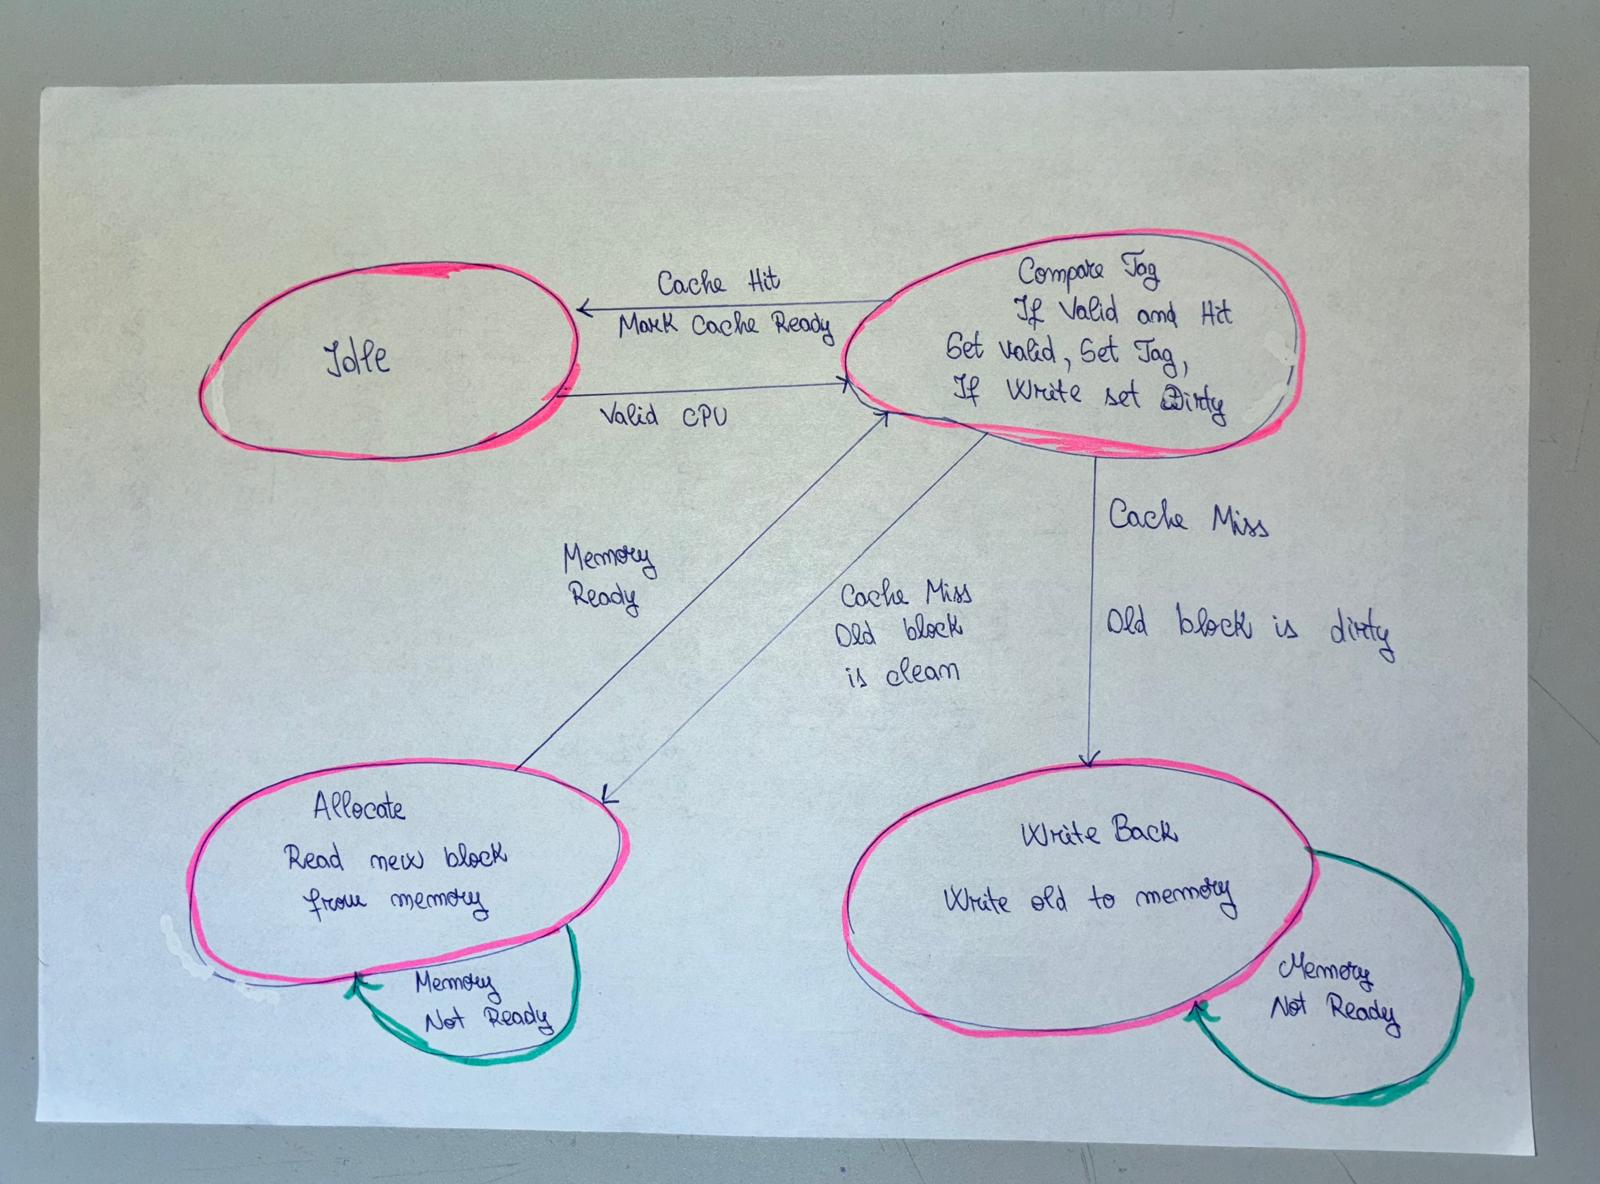 Cache Hit
Mark Cache Ready
Idle
Valid CPU
Compare Tag
If Valid and Hit
Set valid, Set Tag,
If Write set Dirty
Memory
Ready
Cache Miss
Old block
is clean
Cache Miss
Old block is dirty
Allocate
Read new block
from memory
Memory
Not Ready
Write Back
Write old to memory
Memory
Not Ready